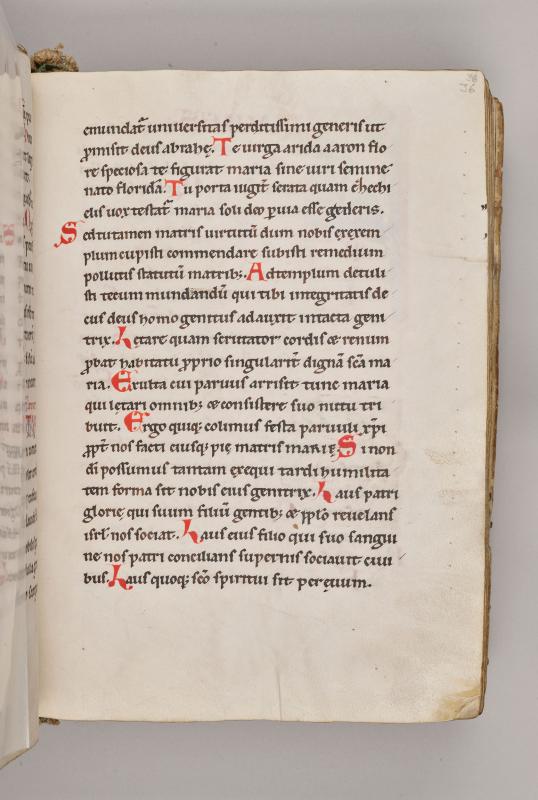 36
26
emundat᷑ universitas perditissimi generis ut
ꝓmisit deus abrahę. Te virga arida aaron flo
re speciosa te figurat maria sine viri semine
nato florida᷑. Tu porta iugit᷑ serata quam ezechi
elis vox testat᷑ maria soli deo ꝑvia esse crederis.
Sed tu tamen matris virtutū dum nobis exem
plum cupisti commendare subisti remedium
pollutis statutū matribꝫ. Ad templum detuli
sti tecum mundandū qui tibi integritatis de
cus deus homo genitus adauxit intacta geni
trix. Lętare quam scrutator cordis & renum
ꝓbat habitatu ꝓprio singularit᷑ dignā scā ma
ria. Exulta cui parvus arrisit tunc maria
qui lętari omnibꝫ & consistere suo nutu tri
buit. Ergo quiqꝫ colimus festa parvuli xp̄i
ꝓpt᷑ nos facti eiusqꝫ pię matris marię. Si non
dī possumus tantam exequi tardi humilita
tem forma sit nobis eius genitrix. Laus patri
glorię qui suum filiū gentibꝫ & pplo revelans
isrl̄ nos sociat. Laus eius filio qui suo sangui
ne nos patri concilians supernis sociavit civi
bus. Laus quoqꝫ scō spiritui sit per ęvum.